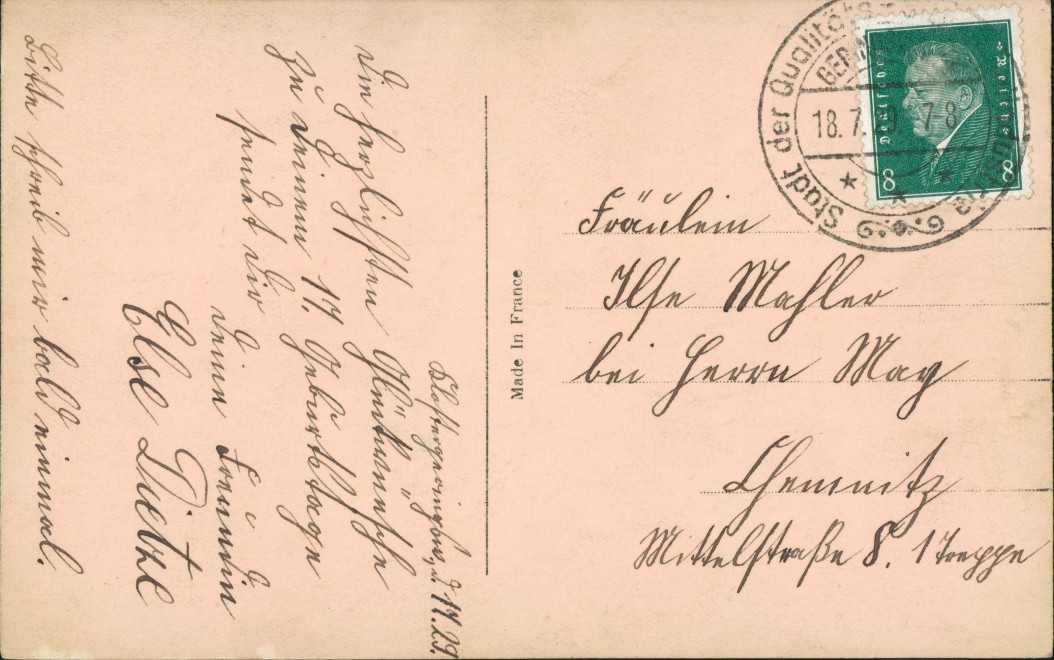 Die herzlichsten Glückwünsche
zu deinem 17. Geburtstage
sendet dir
deine Freundin
Else Dietze
Bitte schreib mir bald einmal.
Made In France
Stadt der Qualitäts
18.7. 7-8
Deutsches Reich
8 8
Fräulein
Ilse Mahler
bei Herrn May
Chemnitz
Mittelstraße 8. 1 Treppe